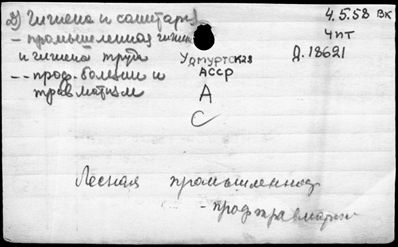 2) Гигиена и санитария
4.5.58 ВК
- промышленная гигиена
и гигиена труда
чпт
Д.18621
Удмуртская
АССР
-- проф. болезни и
травматизм
А
С
Лесная промышленнос.
- проф травматизм